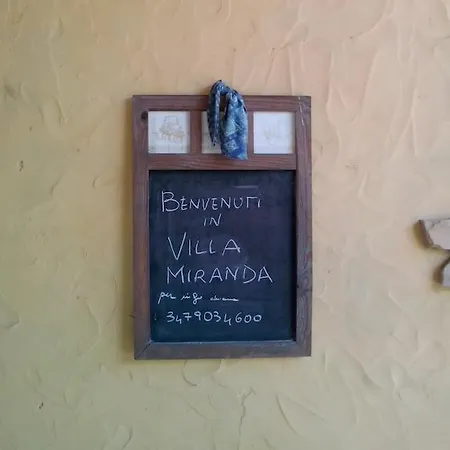 BENVENUTI
IN
VILLA
MIRANDA
per info
3479034600